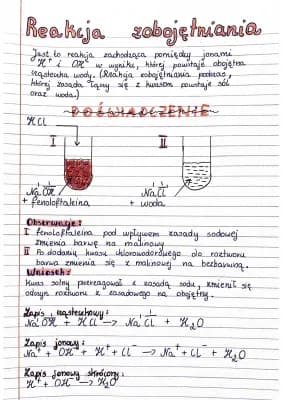 Reakcja zobojętniania
Jest to reakcja zachodząca pomiędzy jonami
H⁺ i OH⁻ w wyniku, której powstaje obojętna
cząsteczka wody. (Reakcja zobojętniania podczas,
której zasada łączy się z kwasem powstaje sól
oraz woda.)
DOŚWIADCZENIE
HCl
I II
NaOH NaCl
+ fenoloftaleina + woda
Obserwacje:
I fenoloftaleina pod wpływem zasady sodowej
zmienia barwę na malinowy
II Po dodaniu kwasu chlorowodorowego do roztworu
barwa zmienia się z malinowej na bezbarwną.
Wniosek:
Kwas solny przereagował z zasadą sodu, zmienił się
odczyn roztworu z zasadowego na obojętny.
Zapis cząsteczkowy:
NaOH + HCl → NaCl + H₂O
Zapis jonowy:
Na⁺ + OH⁻ + H⁺ + Cl⁻ → Na⁺ + Cl⁻ + H₂O
Zapis jonowy skrócony:
H⁺ + OH⁻ → H₂O